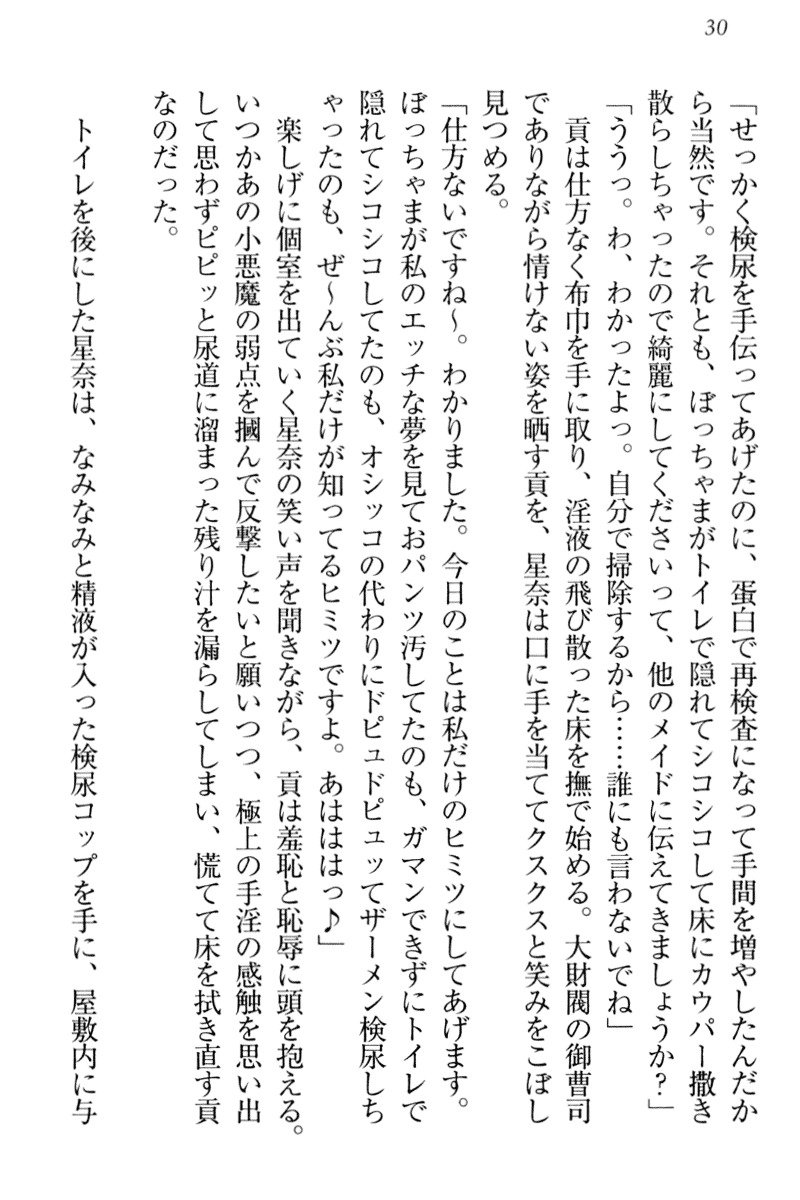 30
「せっかく検尿を手伝ってあげたのに、蛋白で再検査になって手間を増やしたんだか
ら当然です。それとも、ぼっちゃまがトイレで隠れてシコシコして床にカウパー撒き
散らしちゃったので綺麗にしてくださいって、他のメイドに伝えてきましょうか？」
「ううっ。わ、わかったよっ。自分で掃除するから……誰にも言わないでね」
　貢は仕方なく布巾を手に取り、淫液の飛び散った床を撫で始める。大財閥の御曹司
でありながら情けない姿を晒す貢を、星奈は口に手を当ててクスクスと笑みをこぼし
見つめる。
「仕方ないですね～。わかりました。今日のことは私だけのヒミツにしてあげます。
ぼっちゃまが私のエッチな夢を見ておパンツ汚してたのも、ガマンできずにトイレで
隠れてシコシコしてたのも、オシッコの代わりにドピュドピュッてザーメン検尿しち
ゃったのも、ぜ～んぶ私だけが知ってるヒミツですよ。あはははっ♪」
　楽しげに個室を出ていく星奈の笑い声を聞きながら、貢は羞恥と恥辱に頭を抱える。
いつかあの小悪魔の弱点を摑んで反撃したいと願いつつ、極上の手淫の感触を思い出
して思わずピピッと尿道に溜まった残り汁を漏らしてしまい、慌てて床を拭き直す貢
なのだった。
　トイレを後にした星奈は、なみなみと精液が入った検尿コップを手に、屋敷内に与